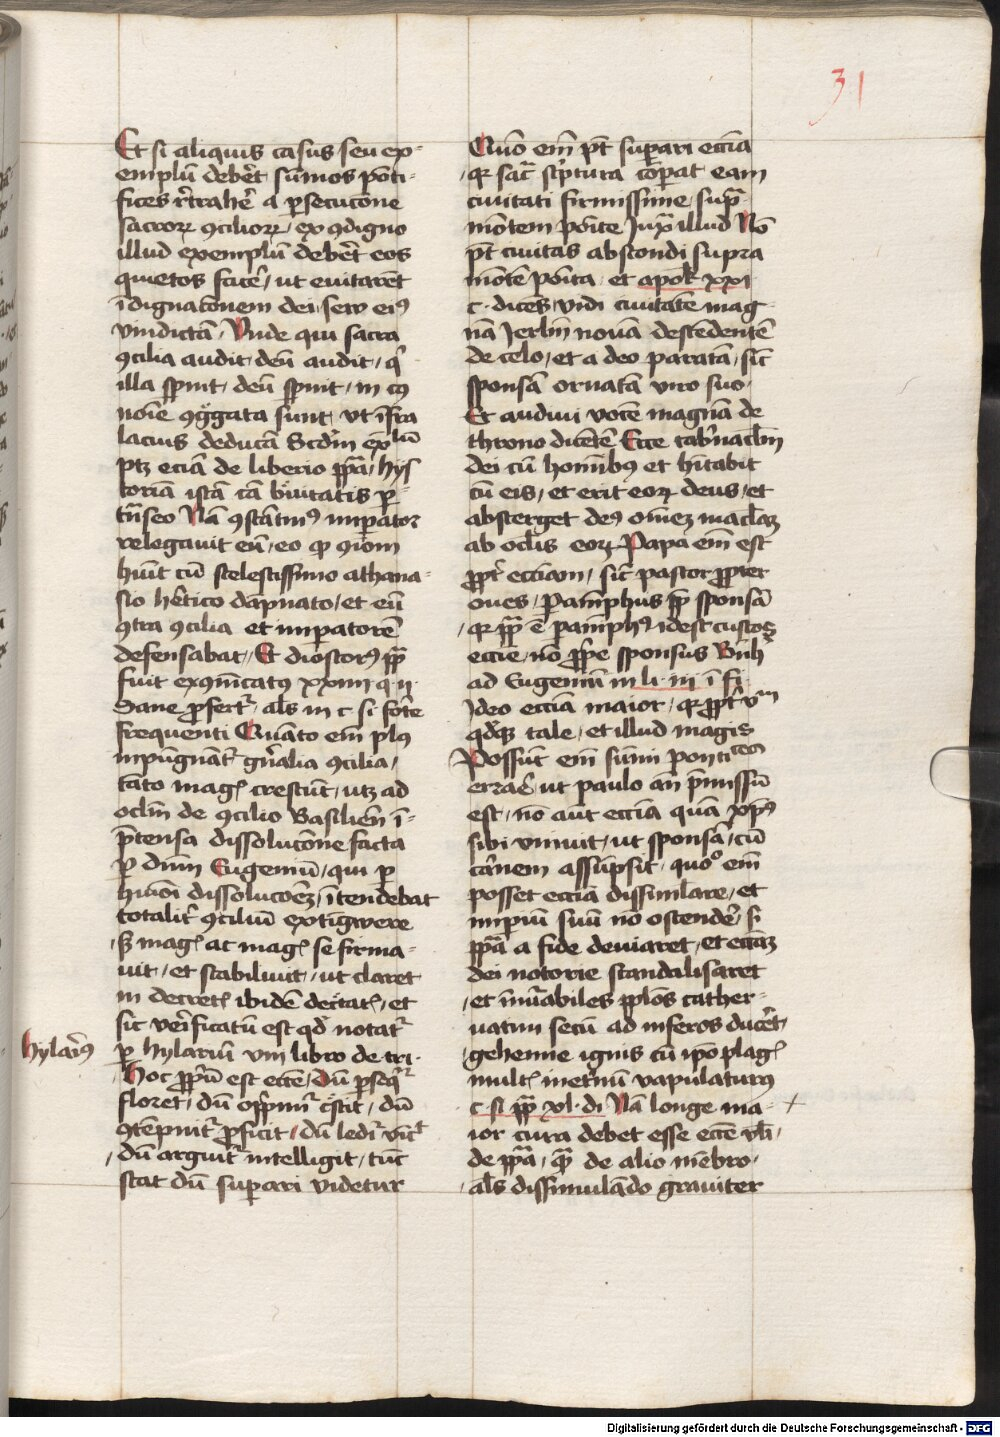 31
Et si aliquis casus seu ex-
emplū debēt sūmos pōti-
fices rᵉtrahēˀ a psecucōne
sacroꝝ ꝯcilioꝝ, ex ꝯdigno
illud exemplū debēt eos
quietos facēˀ, ut euitarēt
īdignatōnem dei, seu eiꝰ
vindictā, Unde qui sacra
ꝯcilia audit, deū audit, qˡ
illa spnit, deū spnit, in cꝰ
noīe ꝯgᵉgata sunt, vt īfra
lacius deducā Scdm exᵖˡū
ptꝫ eciā de liberio ppā, hys
toriā istā cā bᵉuitatis p-
tnseo Nā ꝯstātinꝰ impator
relegauit eū, eo ꝙ ꝯiōm
huīt cū scelestissimo athana-
sio hēˀtico dāpnato, et eū
ꝯtra ꝯcilia et impatorē
defensabat, Et dioscorꝰ pp̄
fuit exꝯicatꝰ xxiiii q. ii
Sane profertᵉ, als in c si fōte
frequenti Quāto em̄ plꝰ
inpugnātᵉ gnˀalia ꝯcilia,
tāto magꝭ crescūt, utꝫ ad
oclm̄ de ꝯcilio Basilien̄ ī-
p̄tensa dissolucōne facta
p dnm̄ Eugeniū, qui p
huiōi dissolucōeꝫ, ītendebat
totalitˀ ꝯciliū extīgwere
sꝫ magꝭ ac magꝭ se firma-
uit, et stabiliuit, ut claret
in decretꝭ ibidē decitatꝭ, et
sic verˀificatū est qd̄ notatᵉ
hylarꝰ
p hylariū viii libro de tri.
Hoc ppˡū est eccē, dū pseqᵉ
floret, dū oppmiᵉ cˀscit, dū
ꝯtēpnitᵉ proficit, dū lediᵉ vīcˡ
dū arguitᵉ intelligit, tūc
stat dū supari videtur
Quō em̄ pt̄ supari eccīa
qꝛ sacᵃ scˡptura cōpat eam
ciuitati firmissime, supᵃ-
mōtem pōite Juxᵃ illud Nō
pt̄ ciuitas abscondi supra
mōtē pōita, et apok xxi
c. dices, vidi ciuitatē mag-
nā Jerlm̄ nouā descēdentē
de celo, et a deo paratā, sic̄
sponsā ornatā viro suo.
Et audiui vocē magnā de
throno dicētē Ecce tabˀnaclm̄
dei cū homībꝰ et hītabit
cū eis, et erit eoꝝ deus, et
absterget deꝰ om̄eꝫ maclaꝫ
ab oclˡis eoꝝ Papa em̄ est
pptˀ eccīam, sic̄ pastor ppter
oues, panīphus pp̄ sponsā
qꝛ pp̄ ē panīphꝰ, idest custos
eccīe, nō ppe sponsus Bn̄h
ad Eugeniū in li. iii ī fi.
Ideo eccīa maior, qꝛ pptˀ vⁿᵘᵐ
qd̄qꝫ tale, et illud magis
Possūt em̄ sūmi pontiᶜᵉˢ
errarˀ, ut paulo an̄ pˡmissū
est, nō aut eccīa quā xp̄ꝰ
sibi vniuit, ut sponsā, cū
carnem assūpsit, quōº em̄
posset eccīa dissimlare, et
impiū suū nō ostendēˀ, si
ppā a fide deuiaret, et eccīaꝫ
dei notorie scandalisaret
et inūˀabiles pplōs cather-
uatim secū ad inferos ducēt
gehenne ignis cū ipo plagꝭ
multꝭ inetˀnū vapulaturꝰ
c. si pp̄ xl. di Nā longe ma-
ior cura debet esse eccē vlī.
de ppā, qᵃ de alio mēbro,
als dissimulādo grauiter
Digitalisierung gefördert durch die Deutsche Forschungsgemeinschaft - DFG